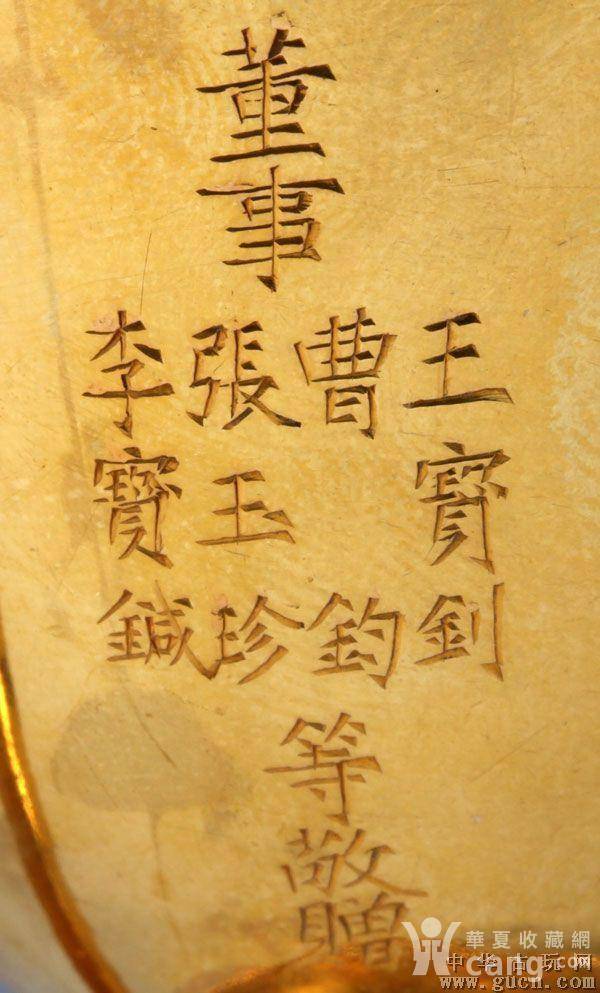 董事
王寶釗
曹鈞
張玉珍
李寶鍼
等敬贈
華夏收藏網
cang.com
中华古玩网
www.gucn.com